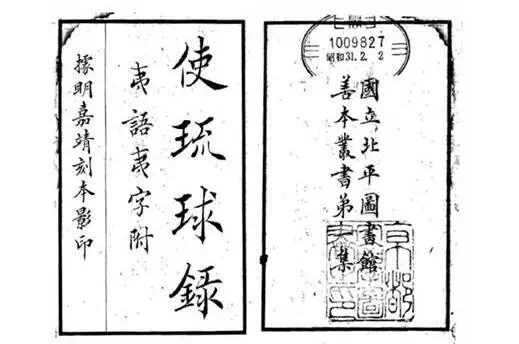 1009827
昭和31.2.2
國立北平圖書館
善本叢書弟集
使琉球錄
夷語夷字附
據明嘉靖刻本影印